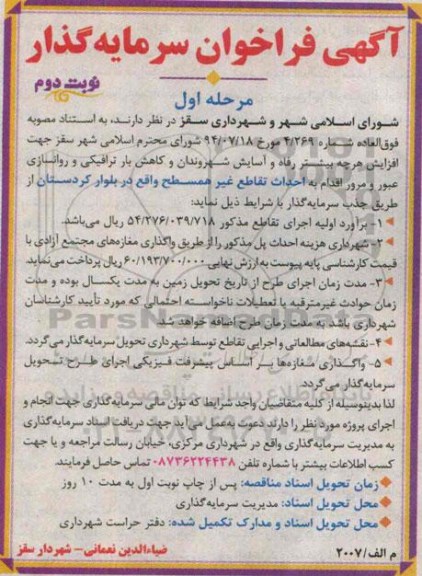 آگهی فراخوان سرمایه‌گذار
نوبت دوم
مرحله اول
شورای اسلامی شهر و شهرداری سقز در نظر دارند، به استناد مصوبه
فوق‌العاده شماره ۴/۲۶۹ مورخ ۹۴/۰۷/۱۸ شورای محترم اسلامی شهر سقز جهت
افزایش هرچه بیشتر رفاه و آسایش شهروندان و کاهش بار ترافیکی و روانسازی
عبور و مرور اقدام به احداث تقاطع غیر همسطح واقع در بلوار کردستان از
طریق جذب سرمایه‌گذار با شرایط ذیل نماید:
۱- برآورد اولیه اجرای تقاطع مذکور ۵۴/۲۷۶/۰۳۹/۷۱۸ ریال می‌باشد.
۲- شهرداری هزینه احداث پل مذکور را از طریق واگذاری مغازه‌های مجتمع آزادی با
قیمت کارشناسی پایه پیوست به ارزش نهایی ۶۰/۱۹۳/۷۰۰/۰۰۰ ریال پرداخت می‌نماید.
۳- مدت زمان اجرای طرح از تاریخ تحویل زمین به مدت یکسال بوده و مدت
زمان حوادث غیرمترقبه یا تعطیلات ناخواسته احتمالی که مورد تأیید کارشناسان
شهرداری باشد به مدت زمان طرح اضافه خواهد شد.
۴- نقشه‌های مطالعاتی و اجرایی تقاطع توسط شهرداری تحویل سرمایه‌گذار می‌گردد.
۵- واگذاری مغازه‌ها بر اساس پیشرفت فیزیکی اجرای طرح تحویل
سرمایه‌گذار می‌گردد.
لذا بدینوسیله از کلیه متقاضیان واجد شرایط که توان مالی سرمایه‌گذاری جهت انجام و
اجرای پروژه مورد نظر را دارند دعوت به‌عمل می‌آید جهت دریافت اسناد سرمایه‌گذاری
به مدیریت سرمایه‌گذاری واقع در شهرداری مرکزی، خیابان رسالت مراجعه و یا جهت
کسب اطلاعات بیشتر با شماره تلفن ۰۸۷۳۶۲۲۴۴۳۸ تماس حاصل فرمایند.
زمان تحویل اسناد مناقصه: پس از چاپ نوبت اول به مدت ۱۰ روز
محل تحویل اسناد: مدیریت سرمایه‌گذاری
محل تحویل اسناد و مدارک تکمیل شده: دفتر حراست شهرداری
ضیاءالدین نعمانی- شهردار سقز
م الف/۲۰۰۷
ParsNamadData